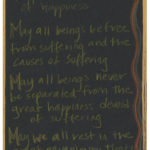 of happiness
May all beings be free
from suffering and the
causes of suffering
May all beings never
be separated from the
great happiness devoid
of suffering
May we all rest in the